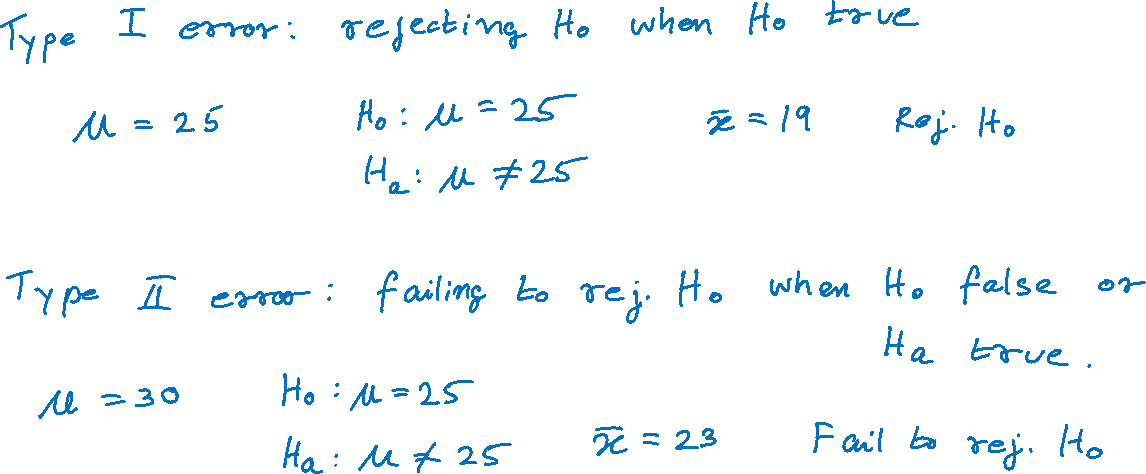 Type I error: rejecting H₀ when H₀ true
μ = 25 H₀: μ = 25 x̄ = 19 Rej. H₀
Hₐ: μ ≠ 25
Type II error: failing to rej. H₀ when H₀ false or
Hₐ true.
μ = 30 H₀: μ = 25
Hₐ: μ ≠ 25 x̄ = 23 Fail to rej. H₀